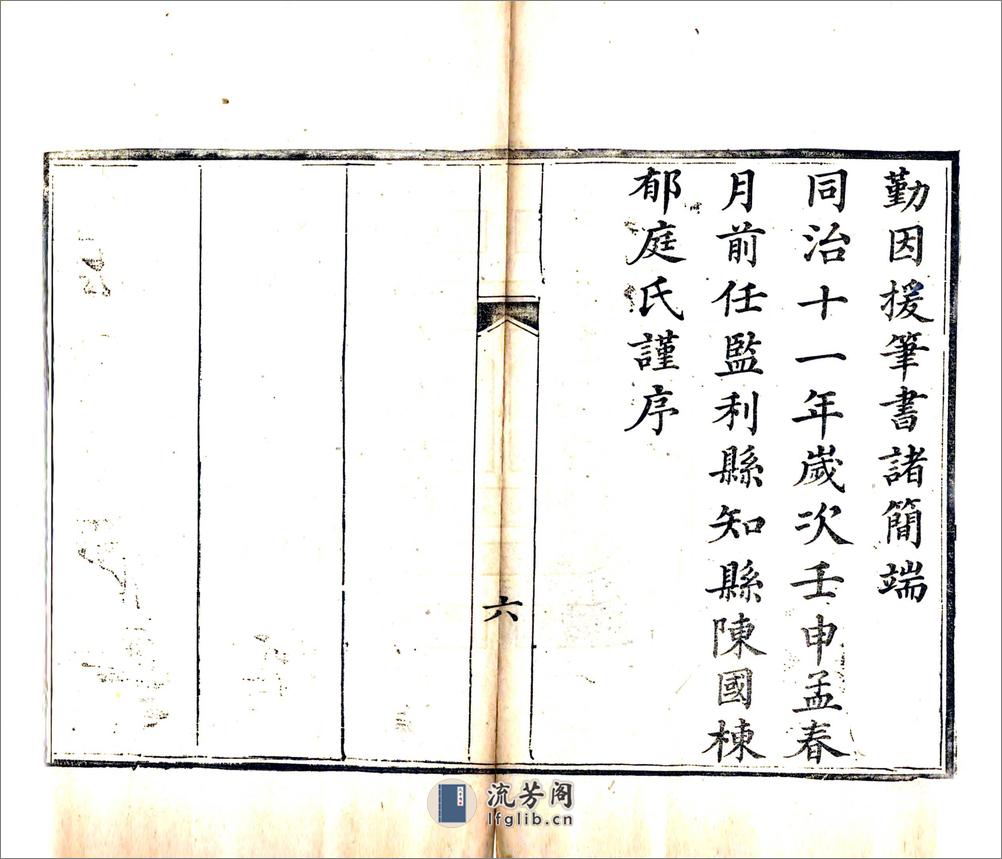 勤因援筆書諸簡端
同治十一年歲次壬申孟春
月前任監利縣知縣陳國棟
郁庭氏謹序
六
流芳阁
lfglib.cn